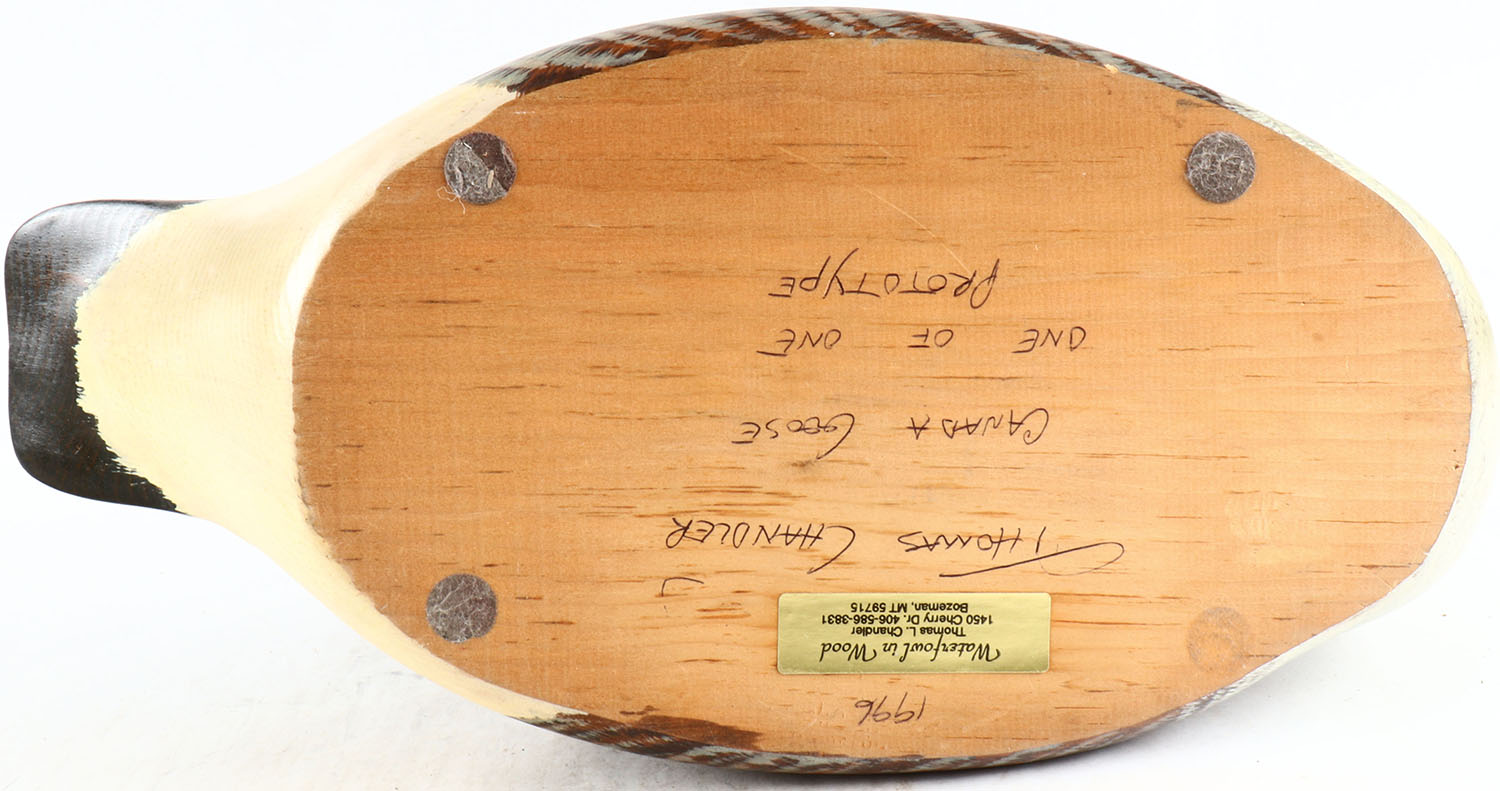 1996
Waterfowl in Wood
Thomas L. Chandler
1450 Cherry Dr. 406-586-3831
Bozeman, MT 59715
THOMAS CHANDLER
CANADA GOOSE
ONE OF ONE
PROTOTYPE